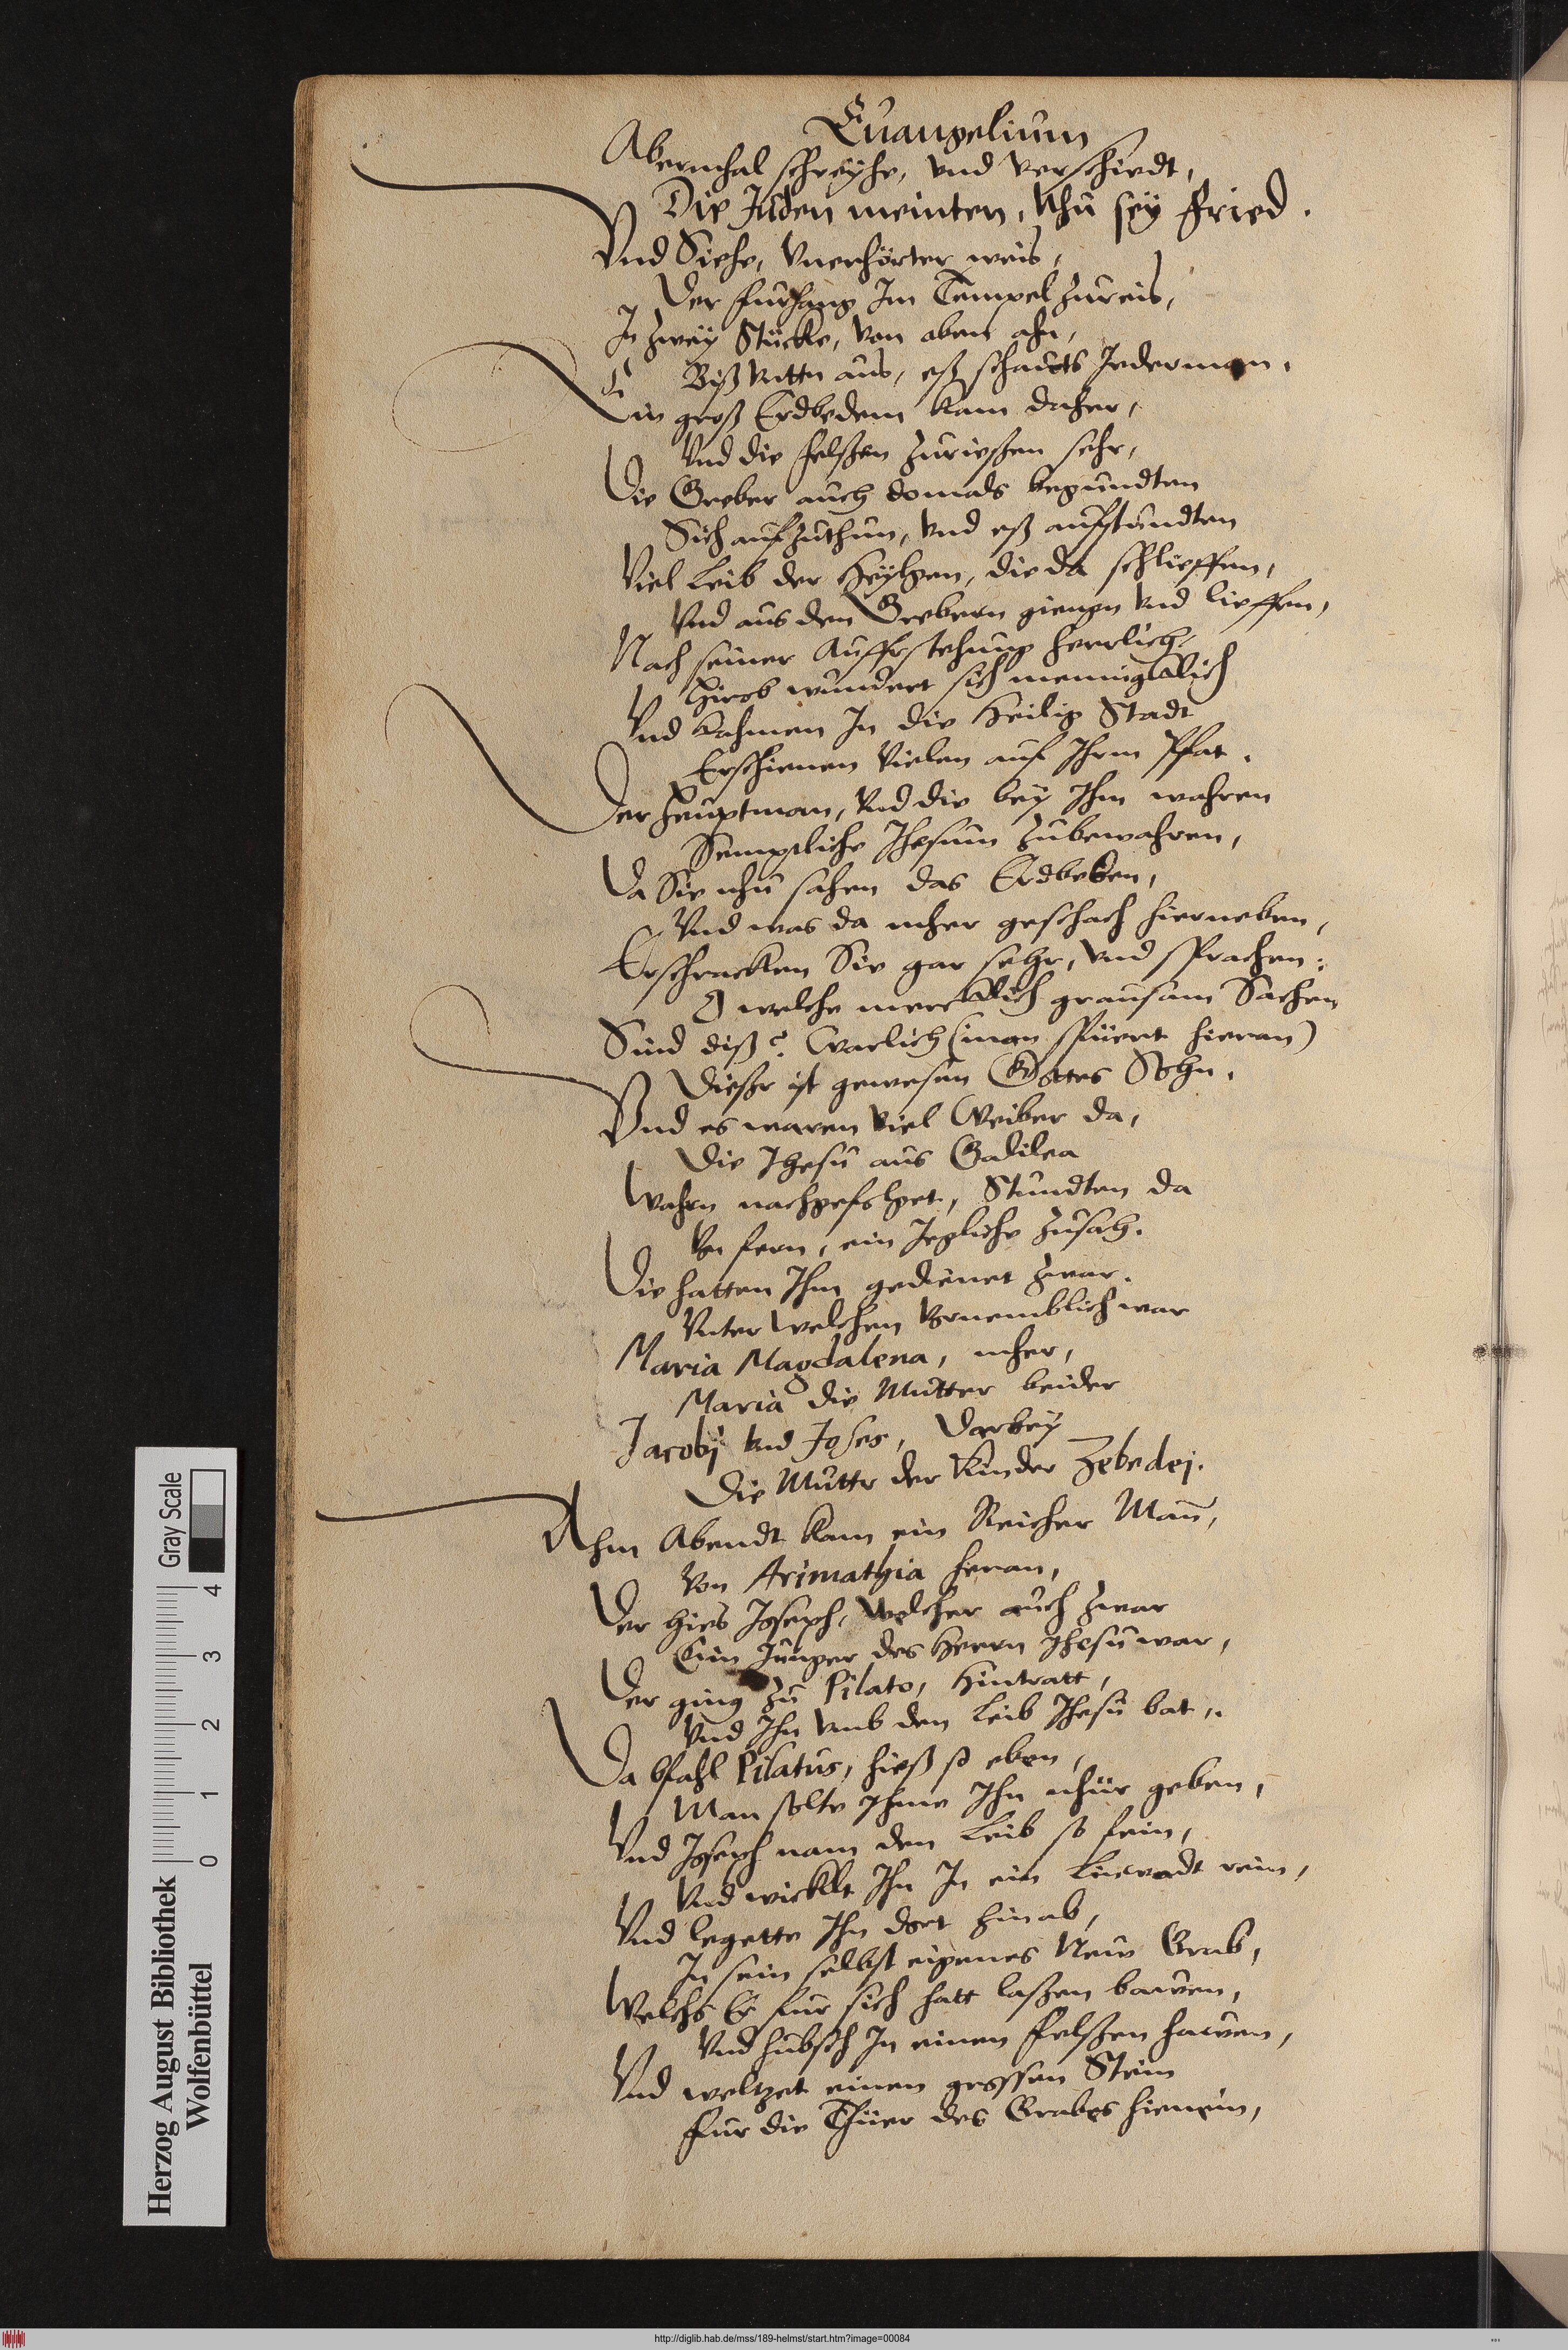 Euangelium
Abermhal schreyhe, vnd verschiedt,
Die Juden meinten, Nhu sey fried.
Vnd Siehe, Vnerhörter weis,
Der furhang Im Tempel zureis,
In zwey Stücke, von oben ahn,
Biß vnttn aus, eß schauets Jederman.
Ein groß Erdbedem kam daher,
Vnd die felßen zurießen sehr,
Die Greber auch domals begundten
Sich aufzuthun, vnd eß aufstundten
Viel Leib der Heylgen, die da schlieffen,
Vnd aus den Grebern giengn vnd lieffen,
Nach seiner Aufferstehung herrlich,
Hirob wundert sich menniglich
Vnd kahmen In die Heilig Stadt
Erschienen Vielen auf Ihrm Pfat.
Der Heuptman, vnd die bey Ihm wahren
Semptliche Jhesum zubewahren,
Da Sie nhu sahen das Erdbeben,
Vnd was da mher geschach hierneben,
Erschracken Sie gar sehr, vnd sprachen:
O welche mercklich grausam Sachen
Sind diß? Warlich (man spüert hieran)
Dießer ist gewesen Gottes Sohn.
Vnd es waren viel Weiber da,
Die Jhesu aus Galilea
Wahrn nachgefolget, Stundten da
Von fern, ein Jegliche zusah.
Die hatten Ihm gedienet zwar.
Vnter welchen Vornemblich war
Maria Magdalena, mher,
Maria die Mutter beider
Jacobj vnd Joses, Darbey
Die Muttr der Kinder Zebedej.
Ahm Abendt kam ein Reicher Man,
Von Arimathia heran,
Der hies Joseph, Welcher auch zwar
Ein Junger des Herrn Jhesu war,
Der ging zu Pilato, Hintratt,
Vnd Ihn vmb den Leib Jhesu bat,
Da bfahl Pilatus, hieß so eben,
Man solte Ihme Ihn nhür geben,
Vnd Joseph nam den Leib so fein,
Vnd wicklt Ihn In ein Linwadt rein,
Vnd legette Ihn dort hinab,
In sein selbst eigenes New Grab,
Welchs Er fur sich hatt laßen bawen,
Vnd hubsch In einen felßen hawen,
Vnd weltzet einen grossen Stein
fur die Thüer des Grabes hienein,
Herzog August Bibliothek
Wolfenbüttel
0 1 2 3 4
Gray Scale
http://diglib.hab.de/mss/189-helmst/start.htm?image=00084